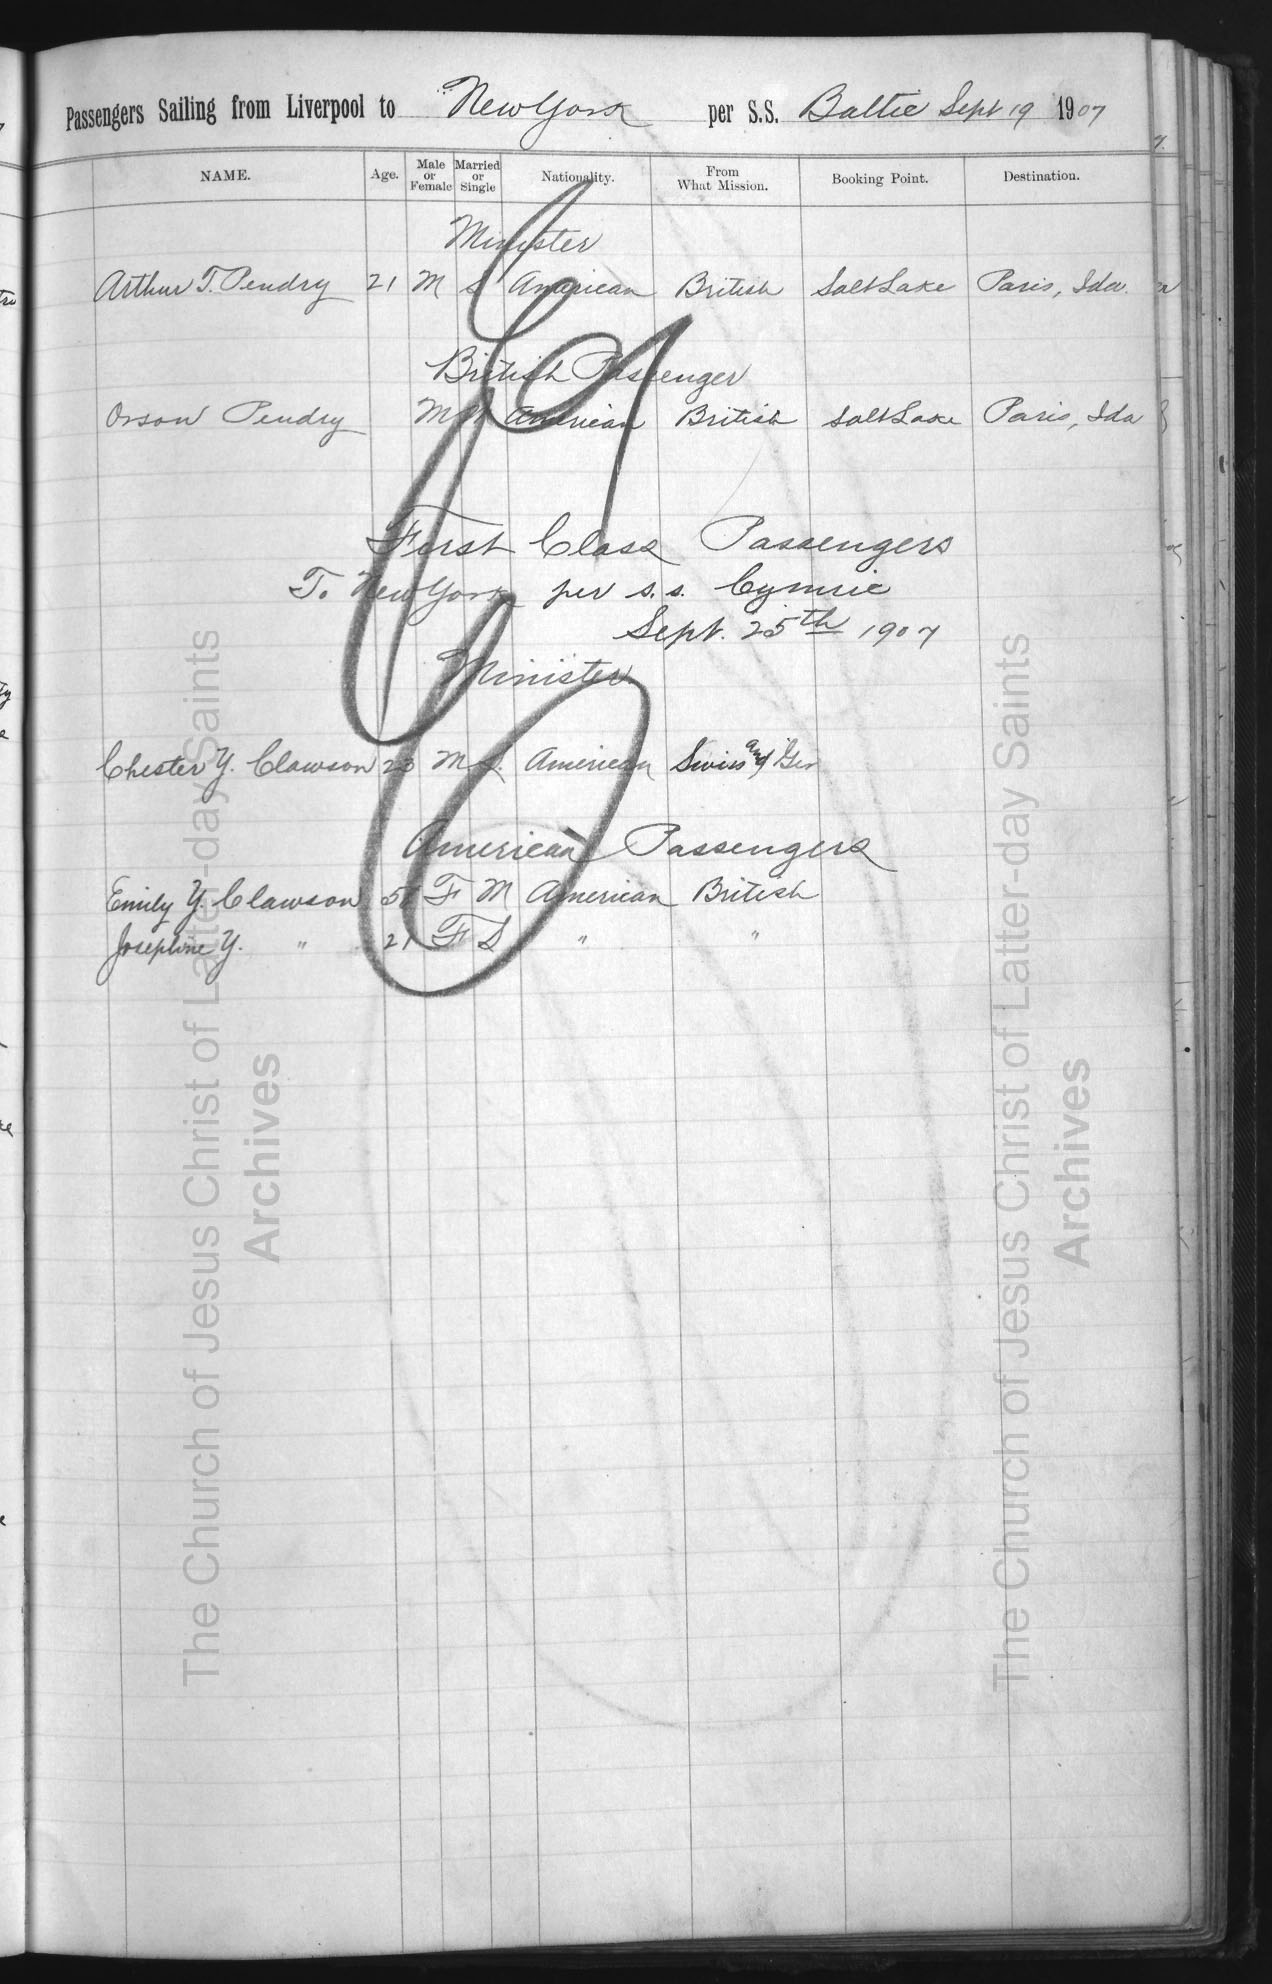 Passengers Sailing from Liverpool to New York per S.S. Baltic Sept 19 1907
NAME. Age. Male or Female Married or Single Nationality. From What Mission. Booking Point. Destination.
Minister
Arthur T. Pendry 21 M S American British Salt Lake Paris, Ida.
British Passenger
Orson Pendry M American British Salt Lake Paris, Ida
First Class Passengers
To New York per s.s. Cymric
Sept. 25th 1907
Minister
Chester Y. Clawson 23 M S. American Swiss and Ger
American Passengers
Emily Y. Clawson F M American British
Josephine Y. " 21 F S " "
The Church of Jesus Christ of Latter-day Saints
Archives
The Church of Jesus Christ of Latter-day Saints
Archives